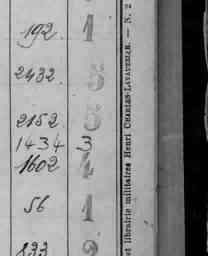 192. 1
2432. 5
2152. 5
1434 3
1602 4
56 1
833 2
et librairie militaires Henri CHARLES-LAVAUZELLE. — N. 2